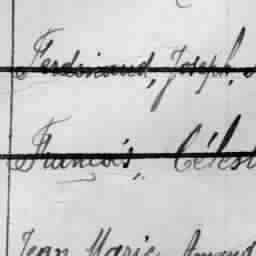 Ferdinand, Joseph,
François, Célest
Jean Marie Amand